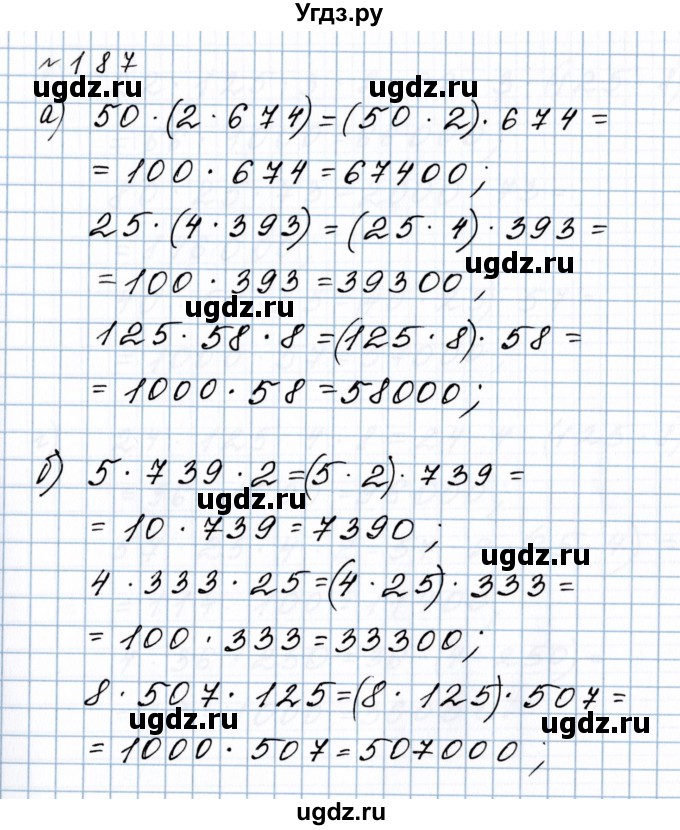 Угдз.ру
№ 187
ugdz.ru ugdz.ru
а) 50 · (2 · 674) = (50 · 2) · 674 =
= 100 · 674 = 67400;
25 · (4 · 393) = (25 · 4) · 393 =
ugdz.ru
= 100 · 393 = 39300;
ugdz.ru
125 · 58 · 8 = (125 · 8) · 58 =
= 1000 · 58 = 58000;
б) 5 · 739 · 2 = (5 · 2) · 739 =
ugdz.ru
= 10 · 739 = 7390;
ugdz.ru
4 · 333 · 25 = (4 · 25) · 333 =
= 100 · 333 = 33300;
8 · 507 · 125 = (8 · 125) · 507 =
ugdz.ru ugdz.ru
= 1000 · 507 = 507000;
ugdz.ru